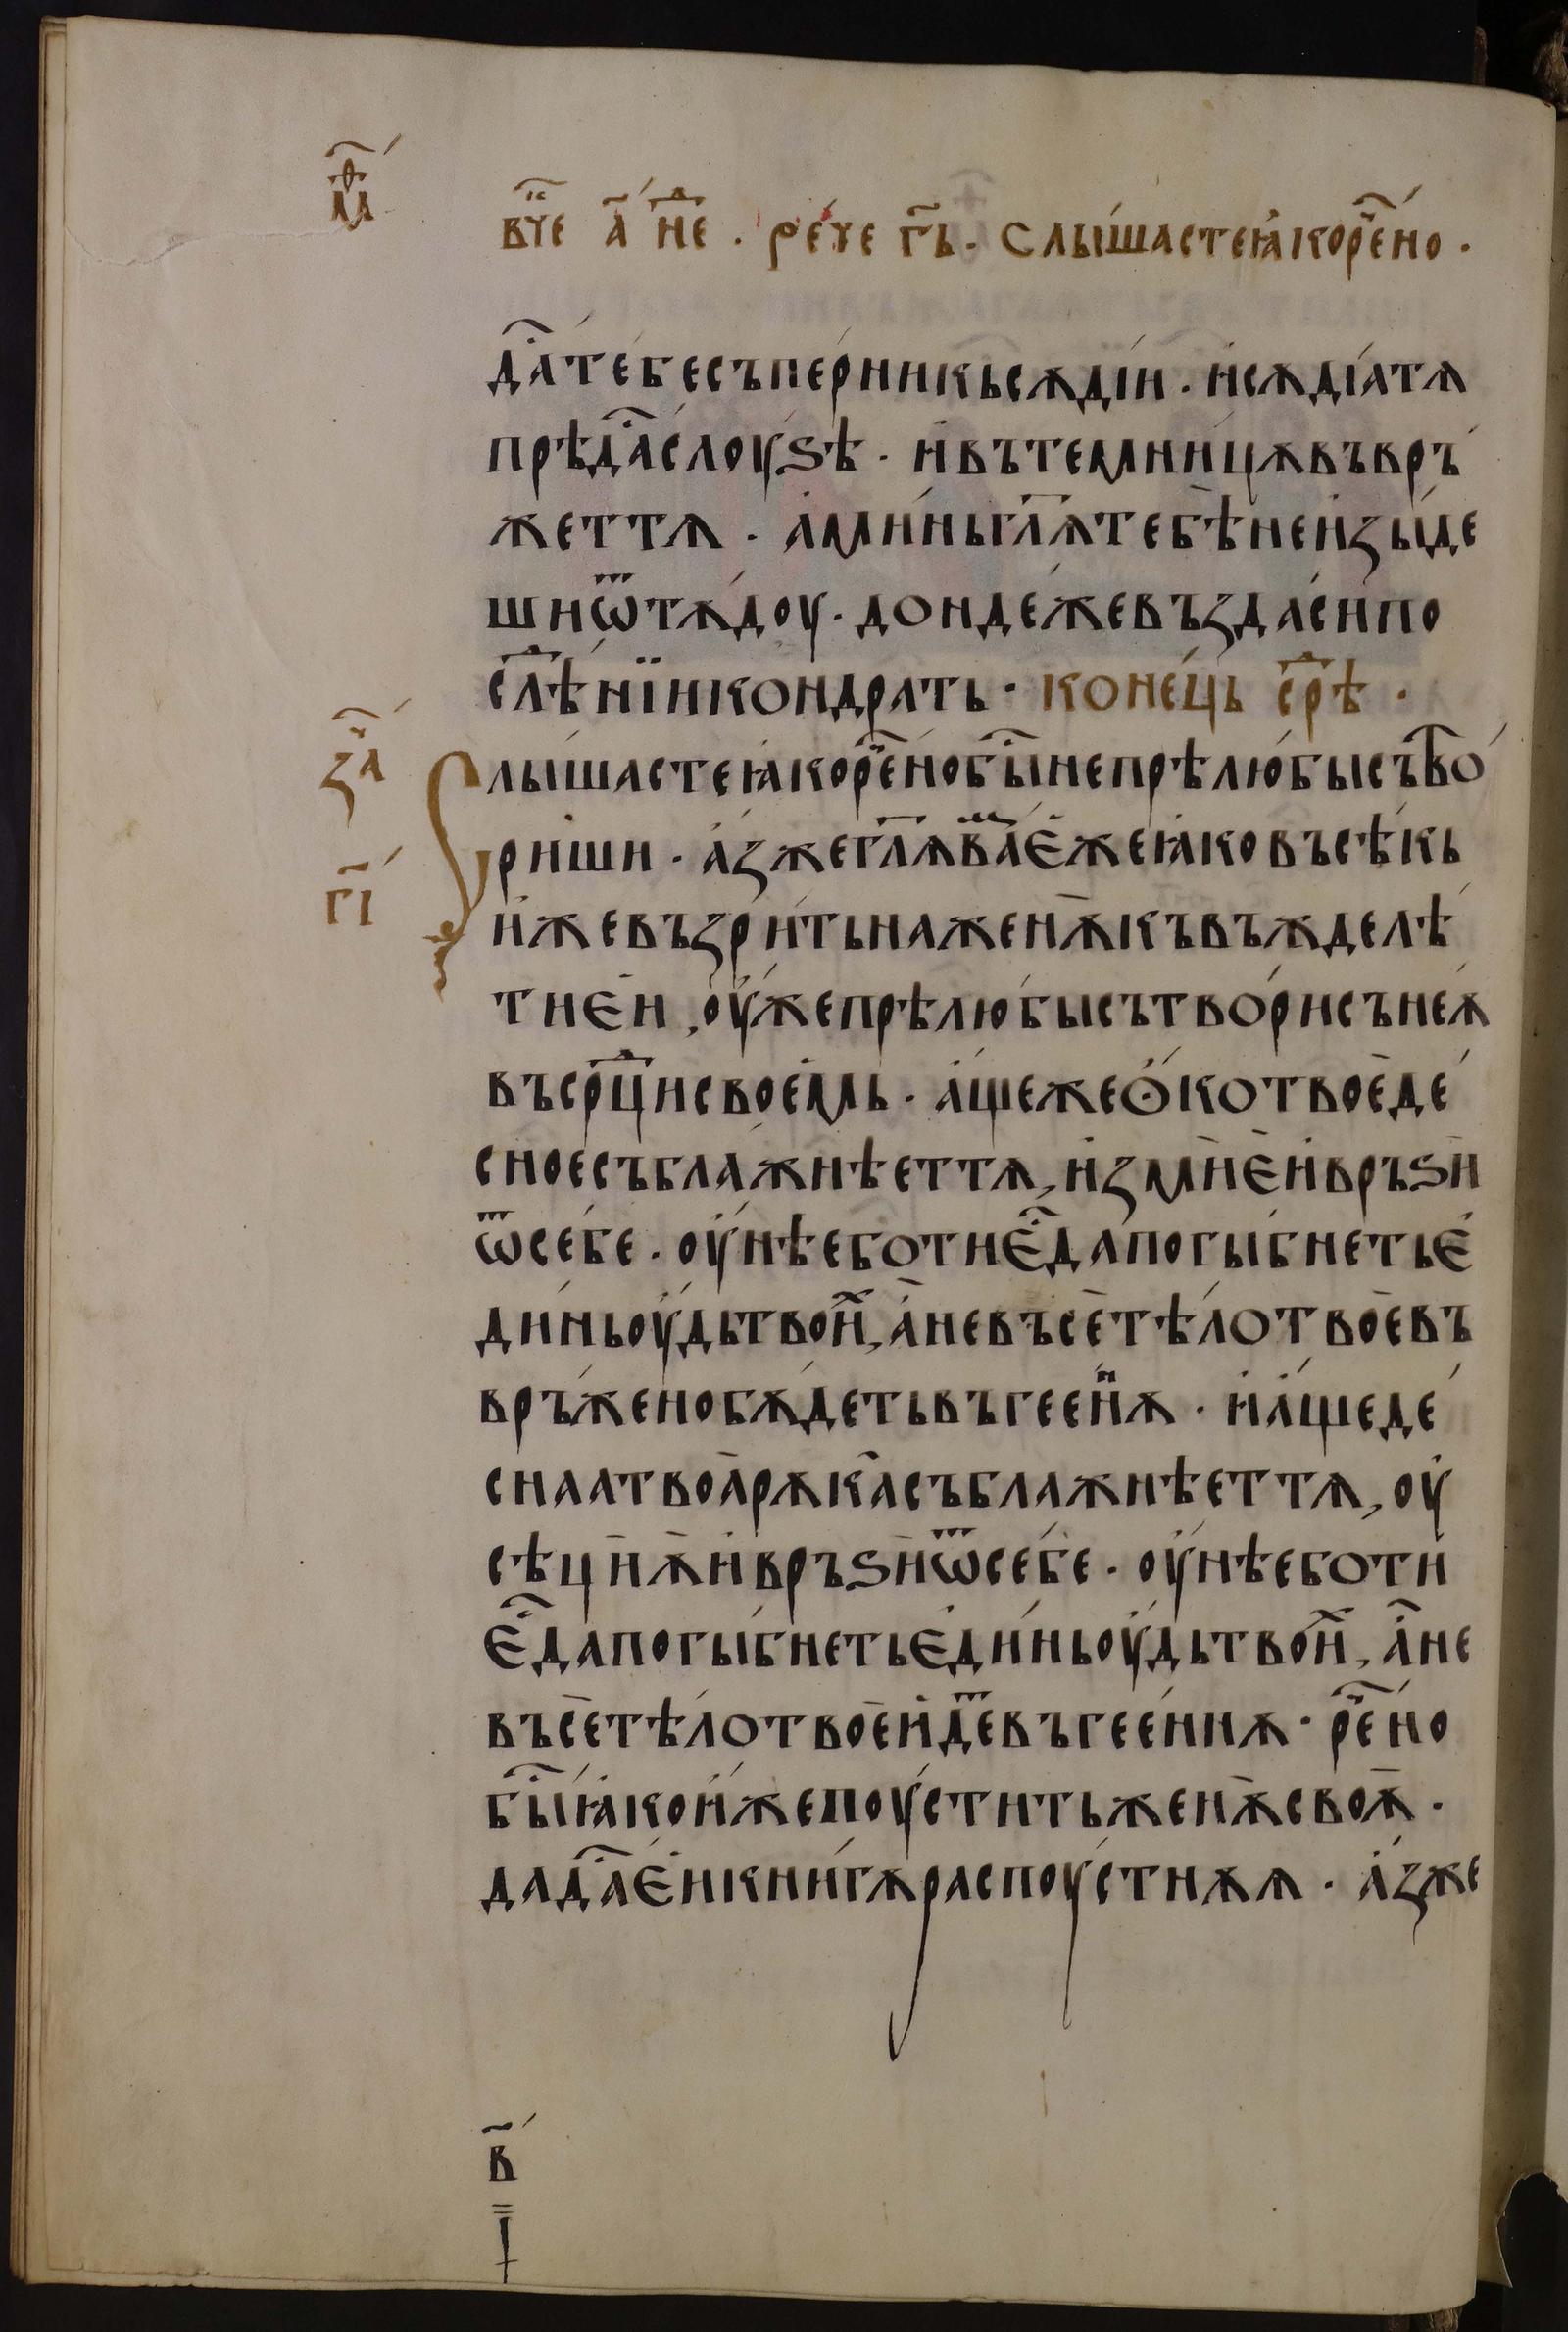 мѳ҃
вче҃ а҃ нед҃ . рече гь҃ . слышастеꙗкоречⷩ҇но .
да҃тебесъперникьсѫдїи . исѫдїатѧ
прѣда҃слоуѕѣ . ивътемницѫвъвръ
жеттѧ . аминьгл҃ѫтебѣнеизыде
шиѿтѫдоу . дондежевъздасипо
слѣⷣнїикондрать . конець срⷣѣ .
за҃
лышастеꙗкорече҃нобы҃непрѣлюбысътво
гі҃
риши . азжегл҃ѫваⷨежеꙗковъсѣкь
ижевъзритьнаженѫкъвъжделѣ
тиеи, оужепрѣлюбысътворисънеѫ
въсрⷣцисвоемь . ащежеꙩкотвоеде
сноесъблажнѣеттѧ, измиеивръѕи
ѿсебе . оунѣеботиедапогыбнетье
диньоудьтвои, аневъсетѣлотвоевъ
връженобѫдетьвъгеенⷩѫ . иащеде
снаатвоарѫкасъблажнѣеттѧ, оу
сѣциѫивръѕиѿсебе . оунѣеботи
едапогыбнетьединьоудьтвои, ане
въсетѣлотвоеидⷮевъгееннѫ . рече҃но
бы҃ꙗкоижепоуститьженѫсвоѫ .
дада҃еикнигѫраспоустнѫѫ . азже
в҃